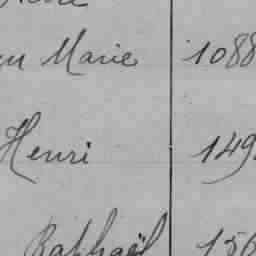 Marie 1088
Henri 149
Raphaël 156